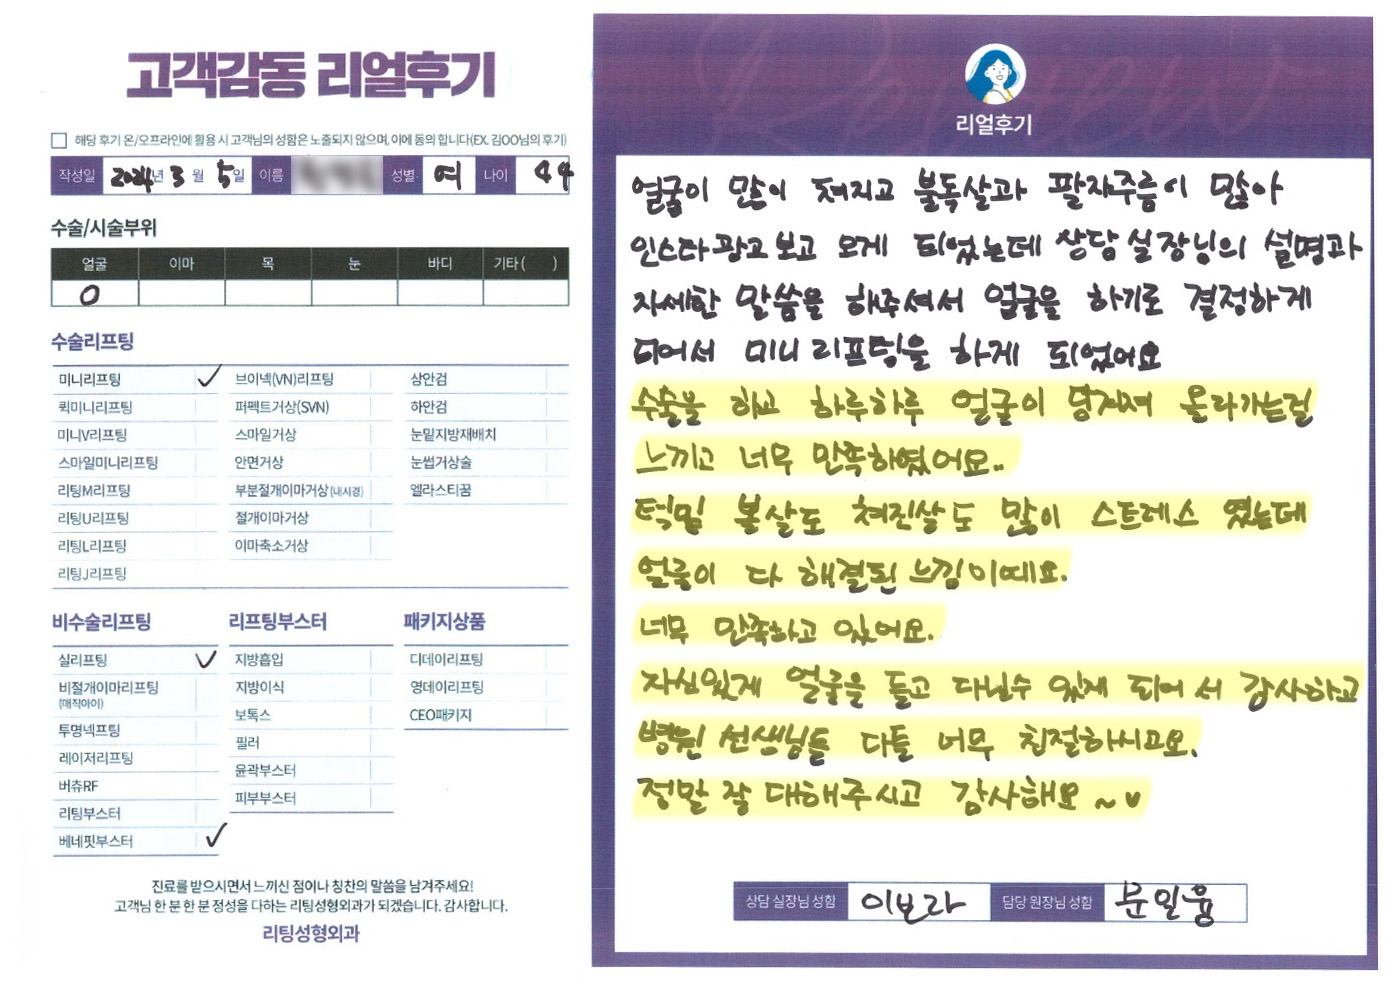 고객감동 리얼후기
해당 후기 온/오프라인에 활용 시 고객님의 성함은 노출되지 않으며, 이에 동의 합니다(EX. 김OO님의 후기)
작성일 2024년 3월 5일 이름 성별 여 나이 44
수술/시술부위
얼굴 이마 목 눈 바디 기타( )
O
수술리프팅
미니리프팅 ✓ 브이넥(VN)리프팅 상안검
퀵미니리프팅 퍼펙트거상(SVN) 하안검
미니V리프팅 스마일거상 눈밑지방재배치
스마일미니리프팅 안면거상 눈썹거상술
리팅M리프팅 부분절개이마거상(내시경) 엘라스티꿈
리팅U리프팅 절개이마거상
리팅L리프팅 이마축소거상
리팅J리프팅
비수술리프팅 리프팅부스터 패키지상품
실리프팅 ✓ 지방흡입 디데이리프팅
비절개이마리프팅 지방이식 영데이리프팅
(매직아이)
보톡스 CEO패키지
투명넥프팅 필러
레이저리프팅 윤곽부스터
버츄RF 피부부스터
리팅부스터
베네핏부스터 ✓
진료를 받으시면서 느끼신 점이나 칭찬의 말씀을 남겨주세요!
고객님 한 분 한 분 정성을 다하는 리팅성형외과가 되겠습니다. 감사합니다.
리팅성형외과
Review
리얼후기
얼굴이 많이 쳐지고 불독살과 팔자주름이 많아
인스타광고보고 오게 되었는데 상담실장님의 설명과
자세한 말씀을 해주셔서 얼굴을 하기로 결정하게
되어서 미니리프팅을 하게 되었어요
수술을 하고 하루하루 얼굴이 당겨져 올라가는걸
느끼고 너무 만족하였어요..
턱밑 볼살도 쳐진살도 많이 스트레스 였는데
얼굴이 다 해결된 느낌이예요.
너무 만족하고 있어요.
자신있게 얼굴을 들고 다닐수 있게 되어서 감사하고
병원 선생님들 다들 너무 친절하시고요.
정말 잘 대해주시고 감사해요 ~♥
상담 실장님 성함 이보라 담당 원장님 성함 문일융